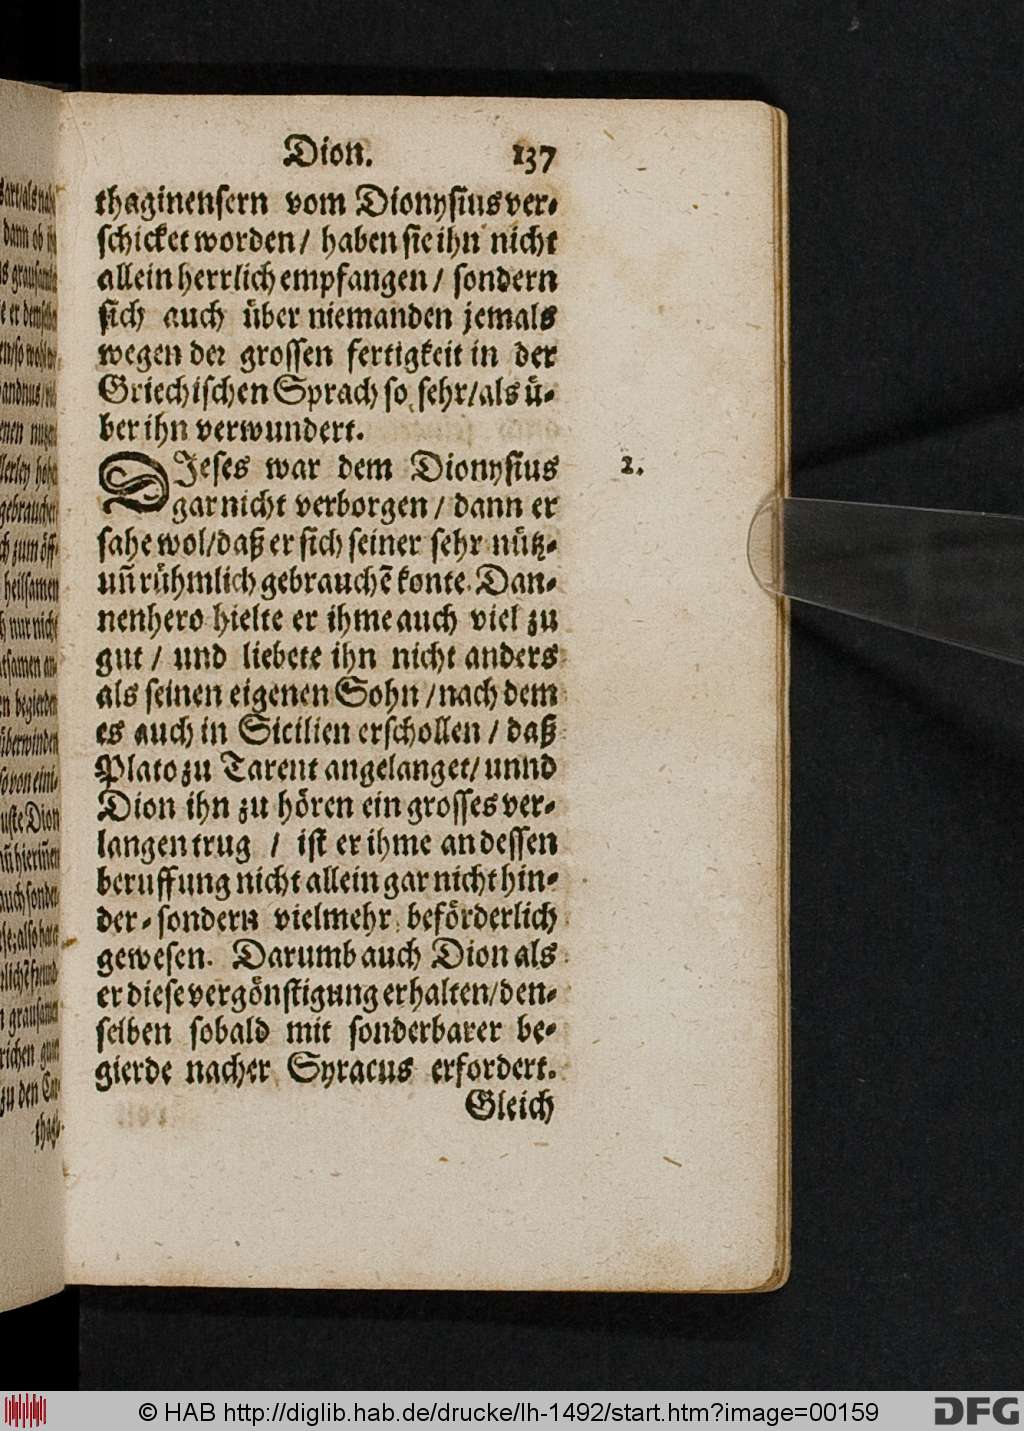 Dion. 137
thaginensern vom Dionysius ver-
schicket worden / haben sie ihn nicht
allein herrlich empfangen / sondern
sich auch über niemanden jemals
wegen der grossen fertigkeit in der
Griechischen Sprach so sehr / als ü-
ber ihn verwundert.
DJeses war dem Dionysius 2.
gar nicht verborgen / dann er
sahe wol / daß er sich seiner sehr nütz-
uñ rühmlich gebrauchē konte. Dan-
nenhero hielte er ihme auch viel zu
gut / und liebete ihn nicht anders
als seinen eigenen Sohn / nach dem
es auch in Sicilien erschollen / daß
Plato zu Tarent angelanget / unnd
Dion ihn zu hören ein grosses ver-
langen trug / ist er ihme an dessen
beruffung nicht allein gar nicht hin-
der- sondern vielmehr beförderlich
gewesen. Darumb auch Dion als
er diese vergönstigung erhalten / den-
selben sobald mit sonderbarer be-
gierde nacher Syracus erfordert.
Gleich
© HAB http://diglib.hab.de/drucke/lh-1492/start.htm?image=00159
DFG